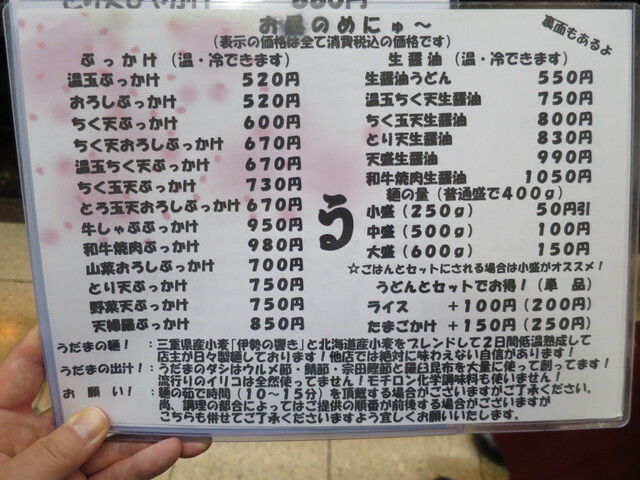 お昼のめにゅ〜
裏面もあるよ
(表示の価格は全て消費税込の価格です)
ぶっかけ (温・冷できます)
温玉ぶっかけ 520円
おろしぶっかけ 520円
ちく天ぶっかけ 600円
ちく天おろしぶっかけ 670円
温玉ちく天ぶっかけ 670円
ちく玉天ぶっかけ 730円
とろ玉天おろしぶっかけ 670円
牛しゃぶぶっかけ 950円
和牛焼肉ぶっかけ 980円
山菜おろしぶっかけ 700円
とり天ぶっかけ 750円
野菜天ぶっかけ 750円
天婦羅ぶっかけ 850円
う
生醤油 (温・冷できます)
生醤油うどん 550円
温玉ちく天生醤油 750円
ちく玉天生醤油 800円
とり天生醤油 830円
天盛生醤油 990円
和牛焼肉生醤油 1050円
麺の量(普通盛で400g)
小盛(250g) 50円引
中盛(500g) 100円
大盛(600g) 150円
☆ごはんとセットにされる場合は小盛がオススメ!
うどんとセットでお得!(単品)
ライス +100円(200円)
たまごかけ +150円(250円)
うだまの麺! :三重県産小麦「伊勢の響き」と北海道産小麦をブレンドして2日間低温熟成して
店主が日々製麺しております!他店では絶対に味わえない自信があります!
うだまの出汁! :うだまのダシはウルメ節・鯖節・宗田鰹節と羅臼昆布を大量に使って創ってます!
流行りのイリコは全然使ってません!モチロン化学調味料も使いません!
お願い! :麺の茹で時間(10〜15分)を頂戴する場合がございますがご了承ください。
尚、調理の都合によってはご提供の順番が前後する場合がございますが
こちらも併せてご了承くださいますよう宜しくお願いいたします。